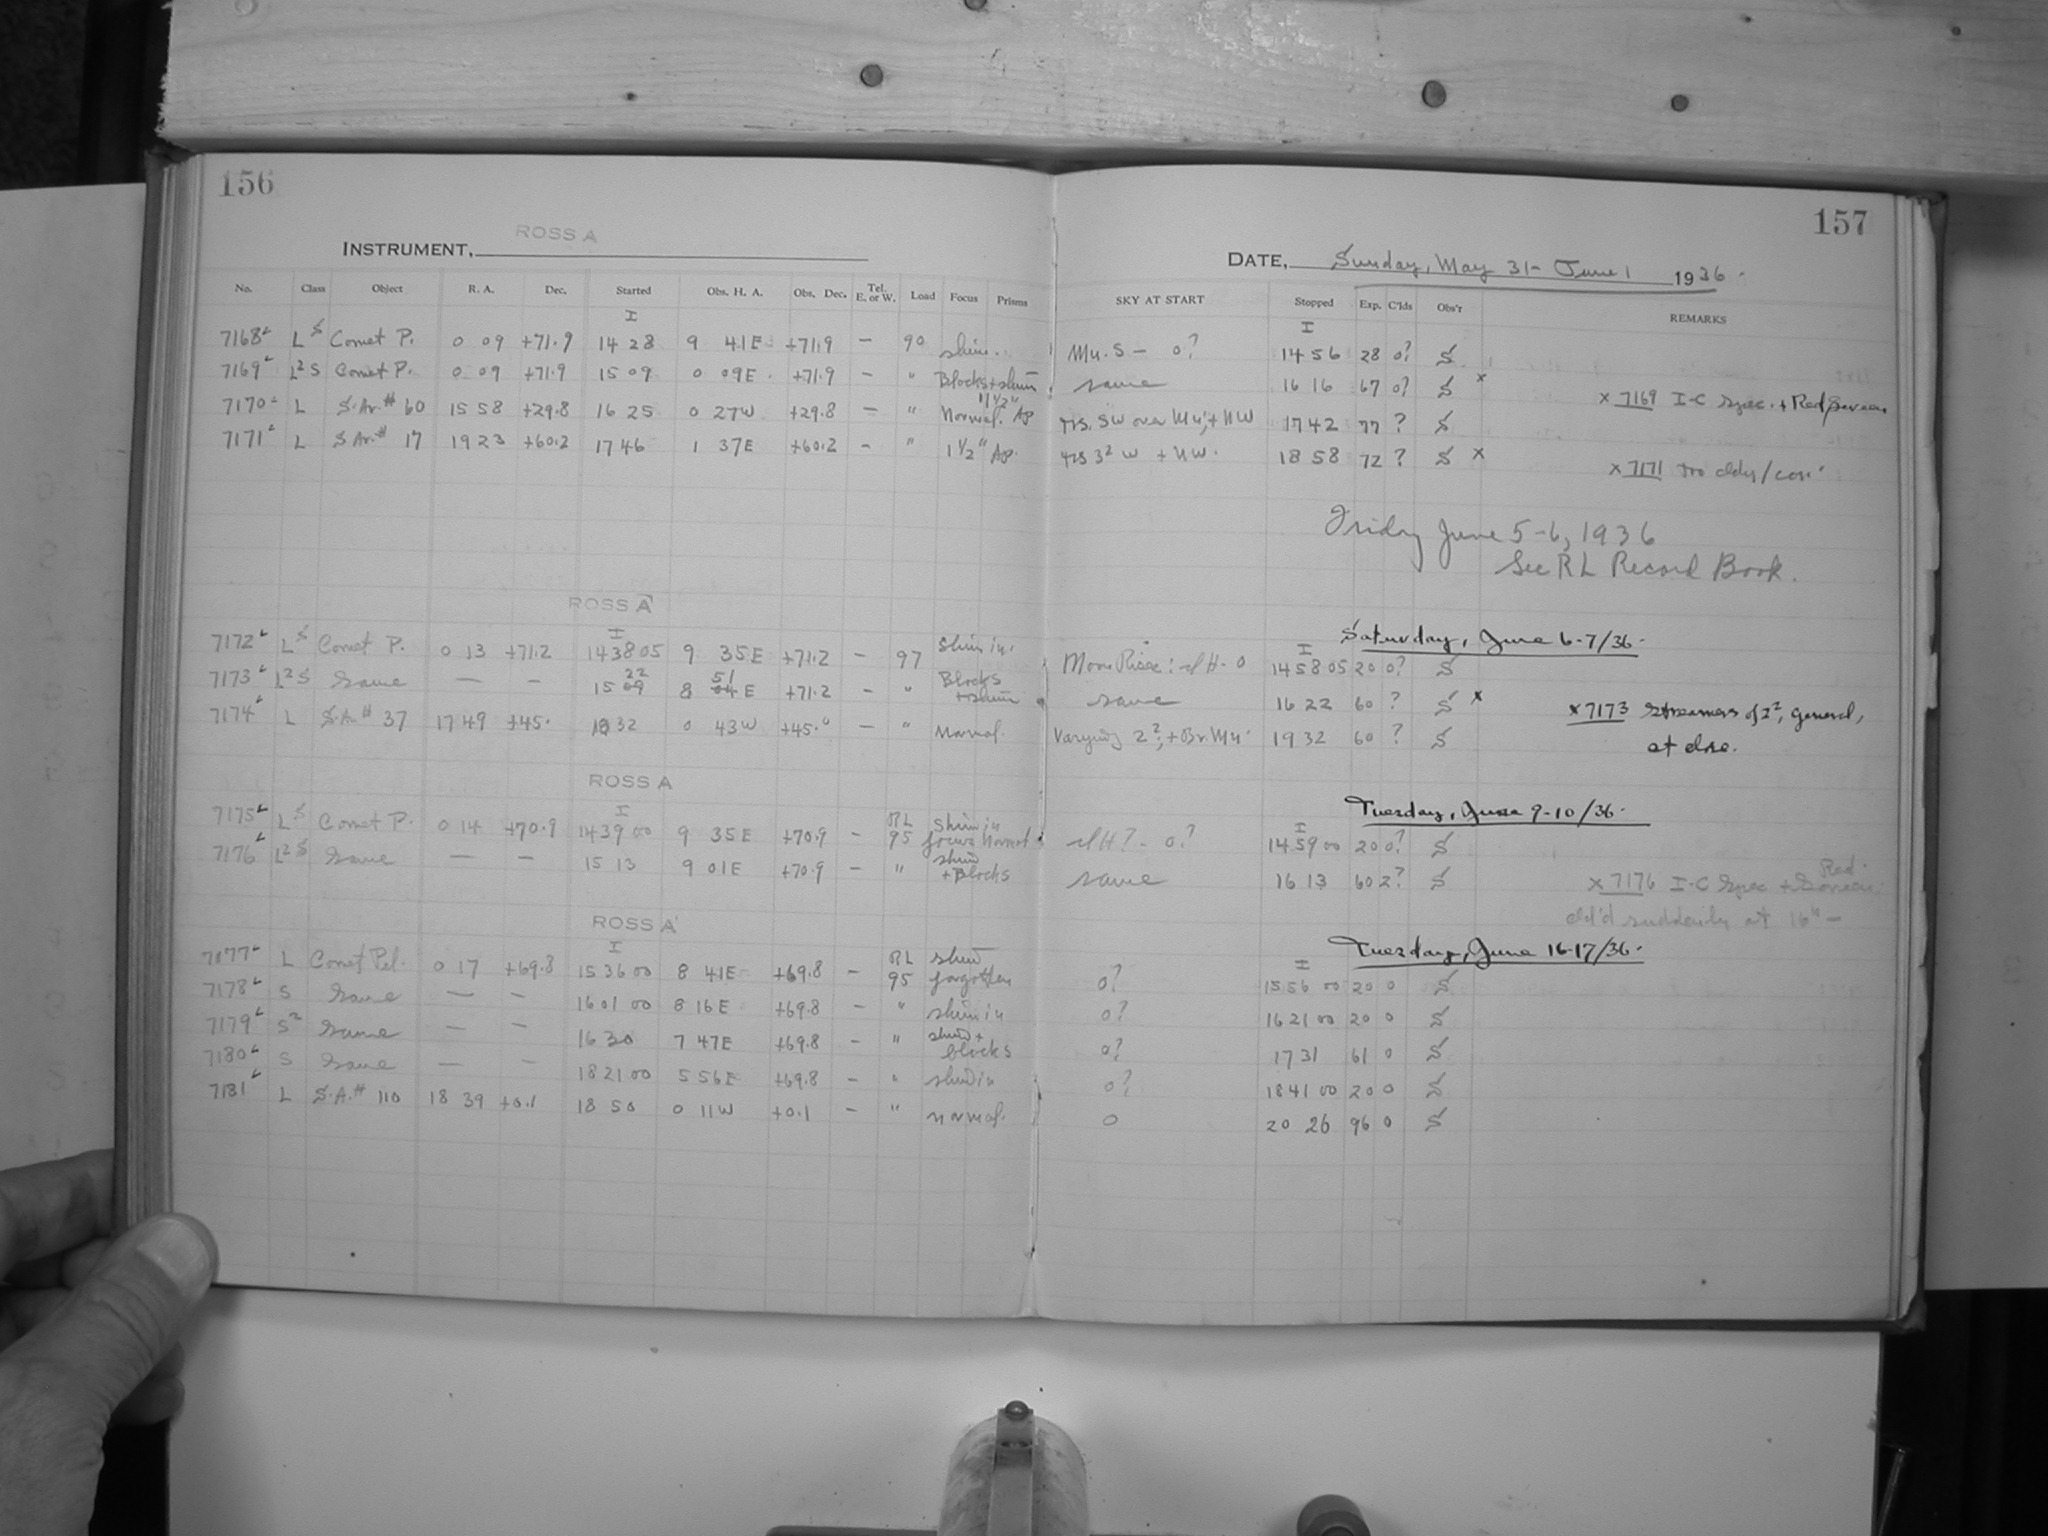 156
157
ROSS A
INSTRUMENT,
DATE, Sunday, May 31 - June 1 1936.
No. Class Object R. A. Dec. Started Obs. H. A. Obs. Dec. Tel. E. or W. Load Focus Prisms SKY AT START Stopped Exp. C'lds Obs'r REMARKS
I I
7168 L S Comet P. 0 09 +71.9 14 28 9 41E +71.9 - 90 shim. Mu. S - 0? 14 56 28 0? S
7169 L² S Comet P. 0 09 +71.9 15 09 0 09E +71.9 - " Blocks + shim same 16 16 67 0? S x x 7169 I-C Spec. + Red Screen
7170 L S.Ar.# 60 15 58 +29.8 16 25 0 27W +29.8 - " Normal. 1 1/2" Ap SW over Mu; + NW 17 42 77 ? S
7171 L S Ar.# 17 19 23 +60.2 17 46 1 37E +60.2 - " 1 1/2" Ap. W + NW. 18 58 72 ? S x x 7171 too cldy/con.
Friday June 5-6, 1936
See RL Record Book.
ROSS A
Saturday, June 6-7/36.
I I
7172 L S Comet P. 0 13 +71.2 14 38 05 9 35E +71.2 - 97 Shim in. Moon Rise: 0 14 58 05 20 0? S
7173 L² S Same — - 15 22 8 51 E +71.2 - " Blocks + shim same 16 22 60 ? S x x 7173 Streamers of 2², general,
at close.
7174 L S.A.# 37 17 49 +45.0 18 32 0 43W +45.0 - " Normal. Varying 2², + Br. Mu. 19 32 60 ? S
ROSS A
Tuesday, June 9-10/36.
I I
7175 L S Comet P. 0 14 +70.9 14 39 00 9 35E +70.9 - RL 95 Shim in focus Normal - 0? 14 59 00 20 0? S
7176 L² S Same — - 15 13 9 01E +70.9 - " shim + Blocks same 16 13 60 2? S x 7176 I-C Spec + Red Screen.
cld'd suddenly at 16h -
ROSS A
Tuesday, June 16-17/36.
I I
7177 L Comet Pel. 0 17 +69.8 15 36 00 8 41E +69.8 - RL 95 shim forgotten 0? 15 56 00 20 0 S
7178 S Same — - 16 01 00 8 16E +69.8 - " shim in 0? 16 21 00 20 0 S
7179 S² Same — - 16 30 7 47E +69.8 - " shim + blocks 0? 17 31 61 0 S
7180 S Same — - 18 21 00 5 56E +69.8 - " shim in 0? 18 41 00 20 0 S
7181 L S.A.# 110 18 39 +0.1 18 50 0 11W +0.1 - " normal. 0 20 26 96 0 S